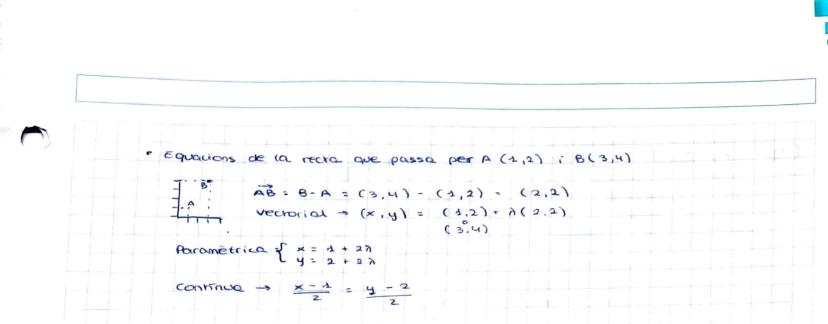 • Equacions de la recta que passa per A (1,2) i B(3,4)
B
A
AB = B-A = (3,4) - (1,2) = (2,2)
Vectorial → (x,y) = (1,2) + λ(2,2)
o
(3,4)
Paramètrica { x = 1 + 2λ
y = 2 + 2λ
Contínua → x - 1 / 2 = y - 2 / 2